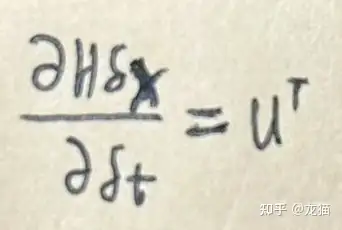 ∂Hδx / ∂δt = u^T
知乎 @龙猫